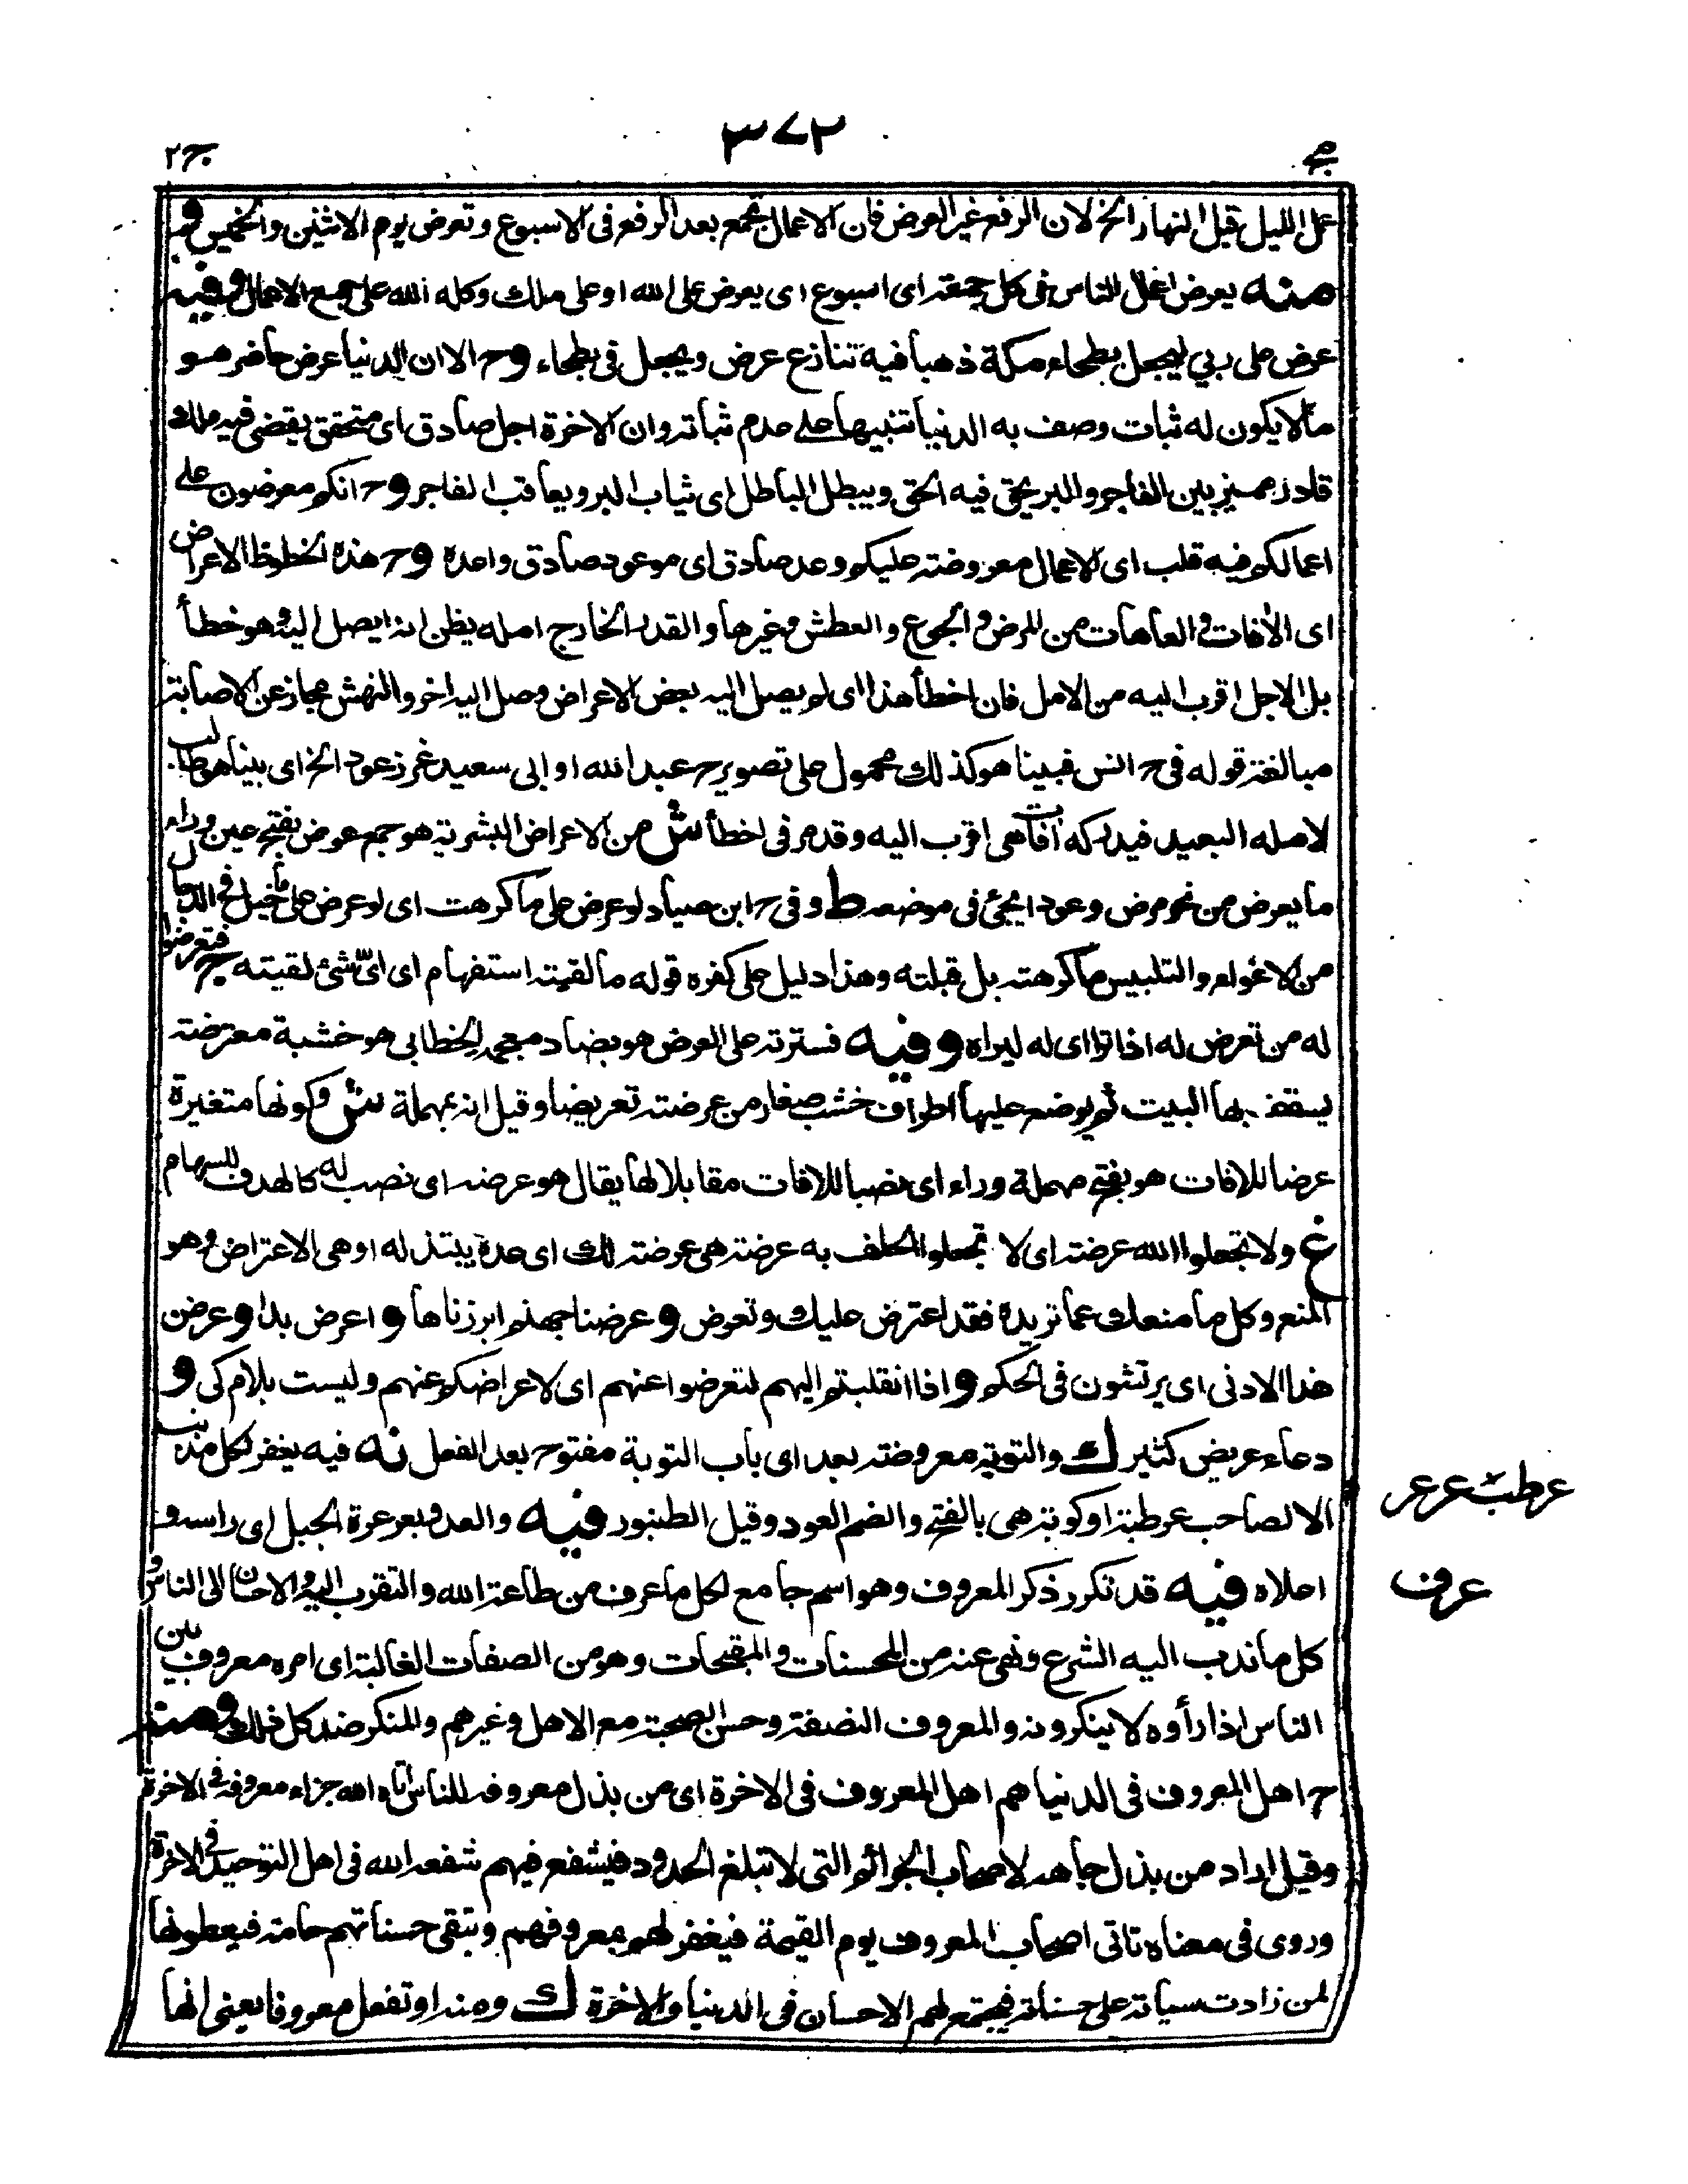 مجے
٣٧٢
ج٢
عمل الليل قبل النهار الخ لان الرفع غير العرض فان الاعمال تجمع بعد الرفع فى الاسبوع وتعرض يوم الاثنين والخميس
منه يعرض اعمال الناس فى كل جمعة اى اسبوع اى يعرض على الله او على ملك وكله الله على جمع الاعمال وفيه
عرض على ربي ليجعل بطحاء مكة ذهبا فيه تنازع عرض ويجعل فى بطحاء وح الا ان الدنيا عرض حاضر هو
مالا يكون له ثبات وصف به الدنيا تنبيها على عدم ثباته وان الاخرة اجل صادق اى متحقق يقضى فيه ملك
قادر مميز بين الفاجر والبر يحق فيه الحق ويبطل الباطل اى يثاب البر ويعاقب الفاجر وح انكم معرضون على
اعمالكم فيه قلب اى الاعمال معروضة عليكم وعد صادق اى موعود صادق واعده وح هذه الخطوط الاعراض
اى الافات والعاهات من المرض والجوع والعطش وغيرها والقدر الخارج امله يظن انه ايصل اليه وهو خطأ
بل الاجل اقرب اليه من الامل فان اخطأ هذا اى لم يصل اليه بعض الاعراض وصل اليه اخر والنهش مجاز عن الاصابة
مبالغة قوله فى ح انس فبينا هو كذلك محمول على تصوير ح عبد الله او ابى سعيد غرز عود الخ اى بينا هو طالب
لامله البعيد فيدركه افات هى اقرب اليه وقد مر فى اخطأ ش من الاعراض البشرية هو جمع عرض بفتح عين وراء
ما يعرض من نحو مرض وعودا يجئ فى موضعه ط وفى ح ابن صياد لو عرض على ما كرهت اى لو عرض على ما جبل فى الدجال
من الاغواء والتلبيس ما كرهته بل قبلته وهذا دليل على كفره قوله ما لقيته استفهام اى اىّ شئ لقيته ج فتعرضوا
له من تعرض له اذا تراا اى له ليراه وفيه فسترته على العرض هو بضاد معجمة الخطابى هو خشبة معترضة
يسقف بها البيت ثم يوضع عليها اطراف خشب صغار من عرضته تعريضا وقيل انه بمهملة ش وكونها متغيرة
عرضا للافات هو بفتح مهملة وراء اى نصبا للافات مقابلا لها يقال هو عرضه اى نصب له كالهدف للسهام
غ ولا تجعلوا الله عرضة اى لا تجعلوا الحلف به عرضة هى عرضة لك اى عدة يبتذله او هى الاعتراض وهو
المنع وكل ما منعك عما تريده فقد اعترض عليك وتعرض و عرضنا جهنم ابرزناها و اعرض بدا و عرض
هذا الادنى اى يرتشون فى الحكم و اذا انقلبتم اليهم لتعرضوا عنهم اى لاعراضكم عنهم وليست بلام كى و
دعاء عريض كثير ك والتوبة معروضة بعد اى باب التوبة مفتوح بعد الفعل نه فيه يغفر لكل مذنب
الا لصاحب عرطبة او كوبة هى بالفتح والضم العود وقيل الطنبور فيه والعدو بعرعرة الجبل اى راسه و
اعلاه فيه قد تكرر ذكر المعروف وهو اسم جامع لكل ما عرف من طاعة الله والتقرب اليه والاحسان الى الناس و
كل ما ندب اليه الشرع ونهى عنه من المحسنات والمقبحات وهو من الصفات الغالبة اى امره معروف بين
الناس اذا رأوه لا ينكرونه والمعروف النصفة وحسن الصحبة مع الاهل وغيرهم والمنكر ضد كل ذلك ومنه
ح اهل المعروف فى الدنيا هم اهل المعروف فى الاخرة اى من بذل معروفه للناس اتاه الله جزاء معروفه فى الاخرة
وقيل اراد من بذل جاهه لاصحاب الجرائم التى لا تبلغ الحدود فيشفع فيهم شفعه الله فى اهل التوحيد فى الاخرة
وروى فى معناه تاتى اصحاب المعروف يوم القيمة فيغفر لهم بمعروفهم وتبقى حسناتهم جامة فيعطونها
لمن زادت سيئاته على حسناته فيجتمع لهم الاحسان فى الدنيا والاخرة ك ومنه او تفعل معروفا يعنى انها
عرطب عرعر
عرف